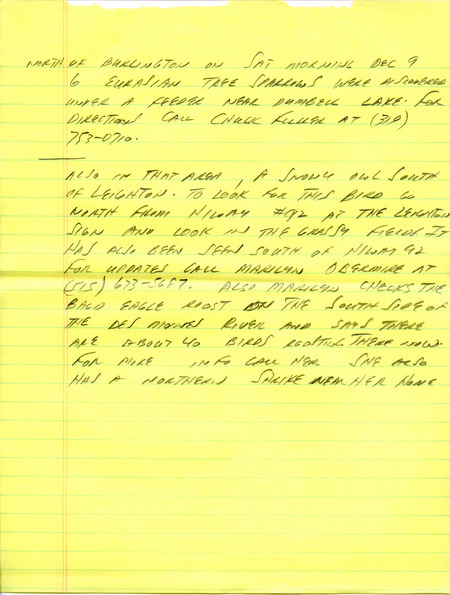 NORTH OF BURLINGTON ON SAT MORNING DEC 9
6 EURASIAN TREE SPARROWS WERE DISCOVERED
UNDER A FEEDER NEAR DUMBELL LAKE. FOR
DIRECTIONS CALL CHUCK FULLER AT (319)
753-0710.
ALSO IN THAT AREA, A SNOWY OWL SOUTH
OF LEIGHTON. TO LOOK FOR THIS BIRD GO
NORTH FROM HIWAY #92 AT THE LEIGHTON
SIGN AND LOOK IN THE GRASSY FIELDS IT
HAS ALSO BEEN SEEN SOUTH OF HIWAY 92
FOR UPDATES CALL MARILYN OBERMIRE AT
(515) 673-5687. ALSO MARILYN CHECKS THE
BALD EAGLE ROOST ON THE SOUTH SIDE OF
THE DES MOINES RIVER AND SAYS THERE
ARE ABOUT 40 BIRDS ROOSTING THERE NOW.
FOR MORE INFO CALL HER. SHE ALSO
HAS A NORTHERN SHRIKE NEAR HER HOME